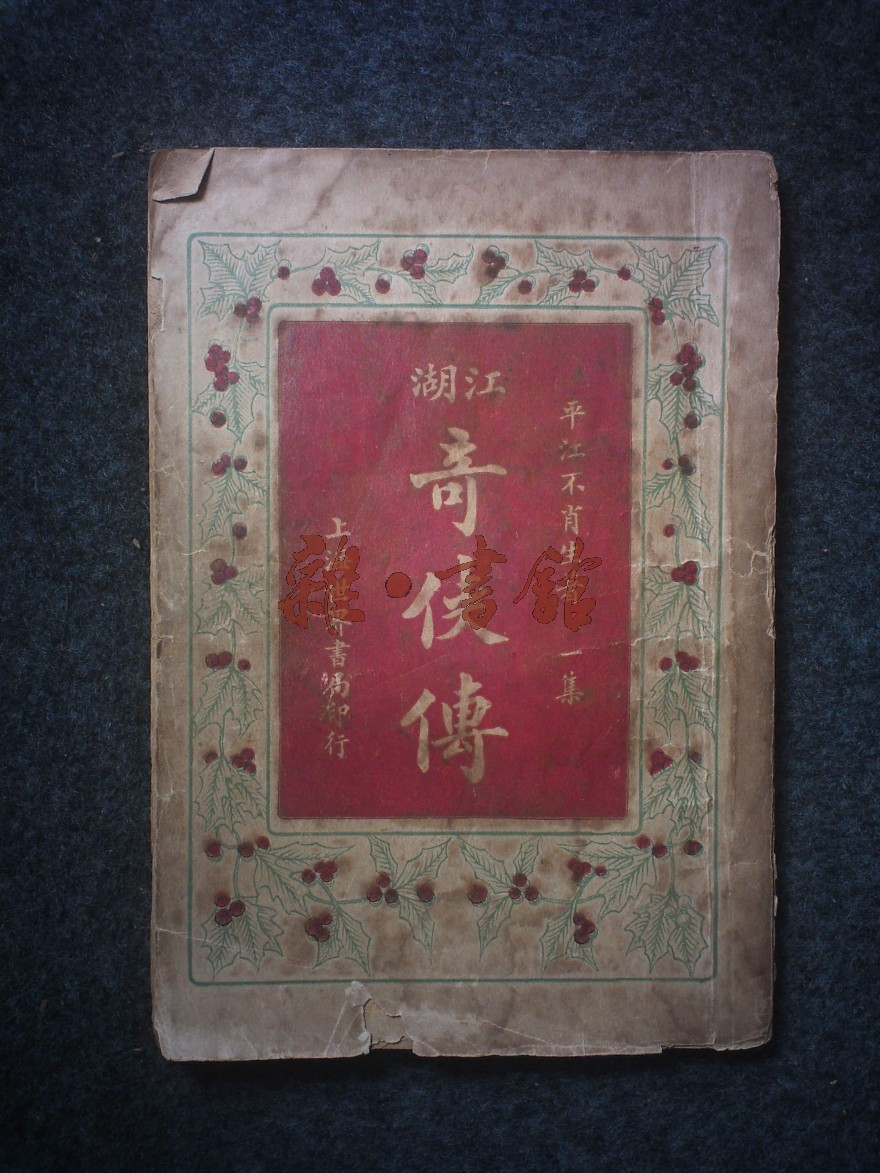 平江不肖生 一集
江湖
奇俠傳
上海世界書局印行
雜·書館